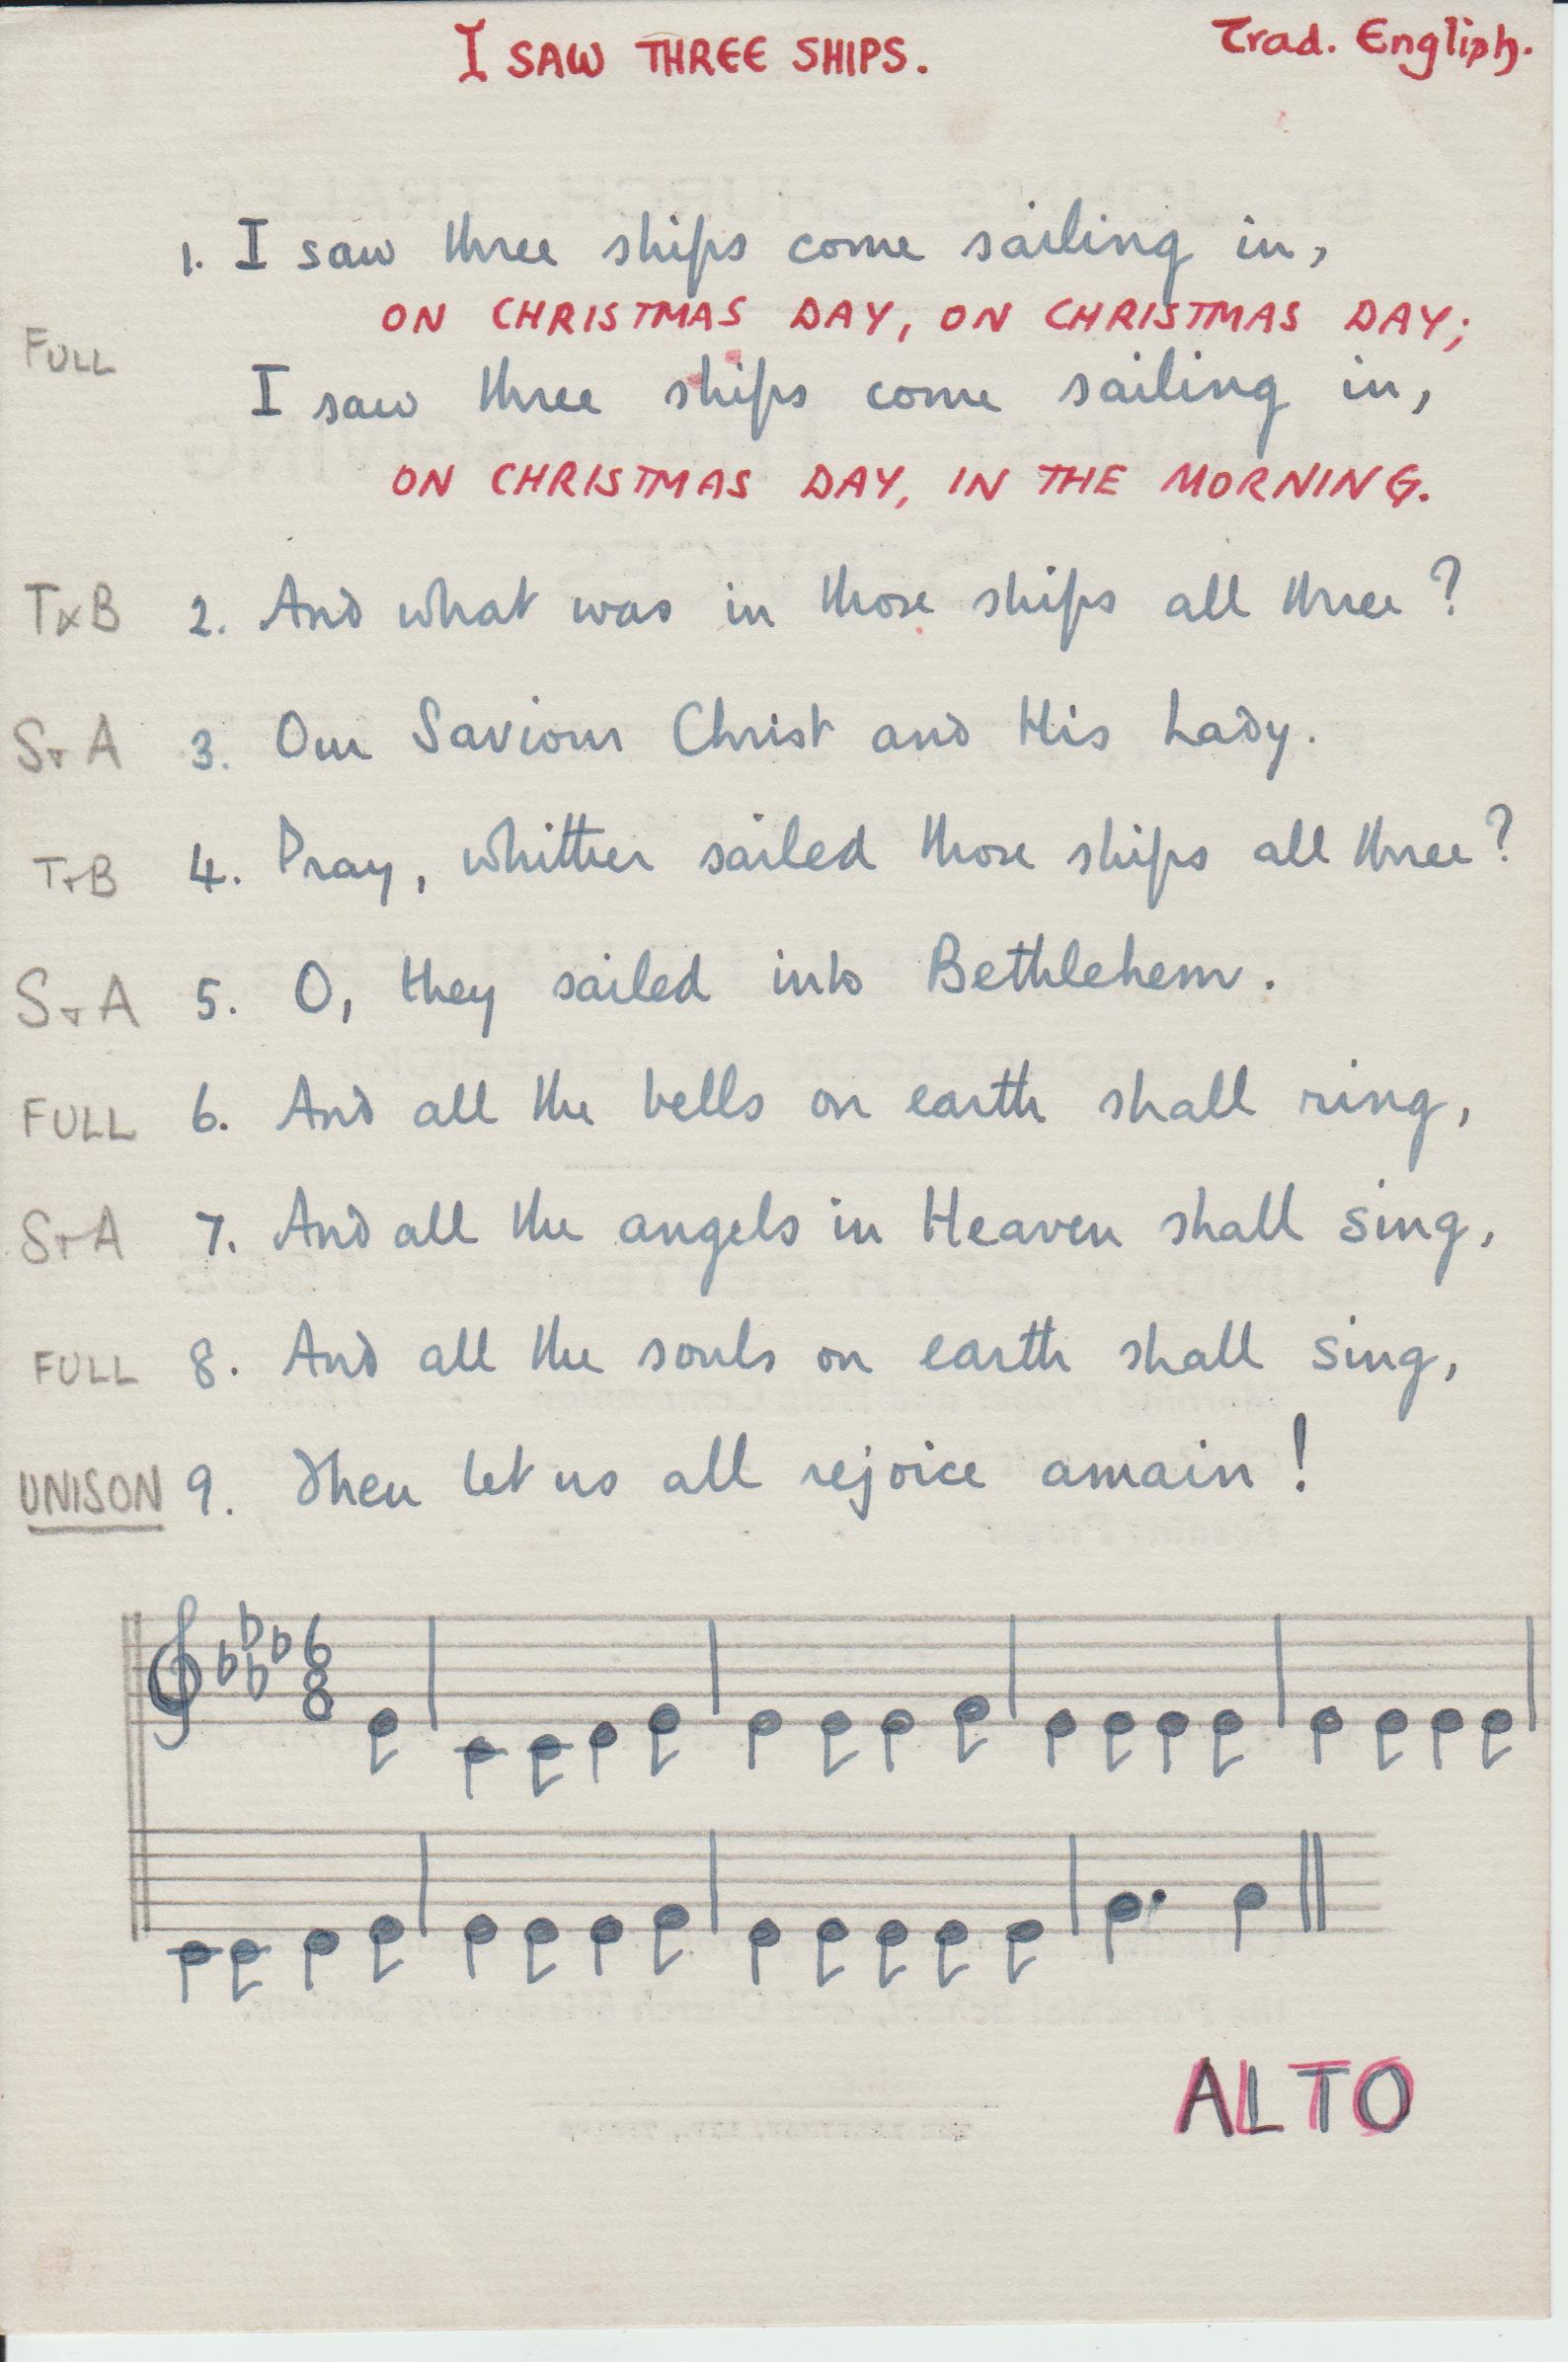 I SAW THREE SHIPS. Trad. English.
1. I saw three ships come sailing in,
ON CHRISTMAS DAY, ON CHRISTMAS DAY;
FULL
I saw three ships come sailing in,
ON CHRISTMAS DAY, IN THE MORNING.
T+B 2. And what was in those ships all three?
S+A 3. Our Saviour Christ and His Lady.
T+B 4. Pray, whither sailed those ships all three?
S+A 5. O, they sailed into Bethlehem.
FULL 6. And all the bells on earth shall ring,
S+A 7. And all the angels in Heaven shall sing,
FULL 8. And all the souls on earth shall sing,
UNISON 9. Then let us all rejoice amain!
6
8
ALTO